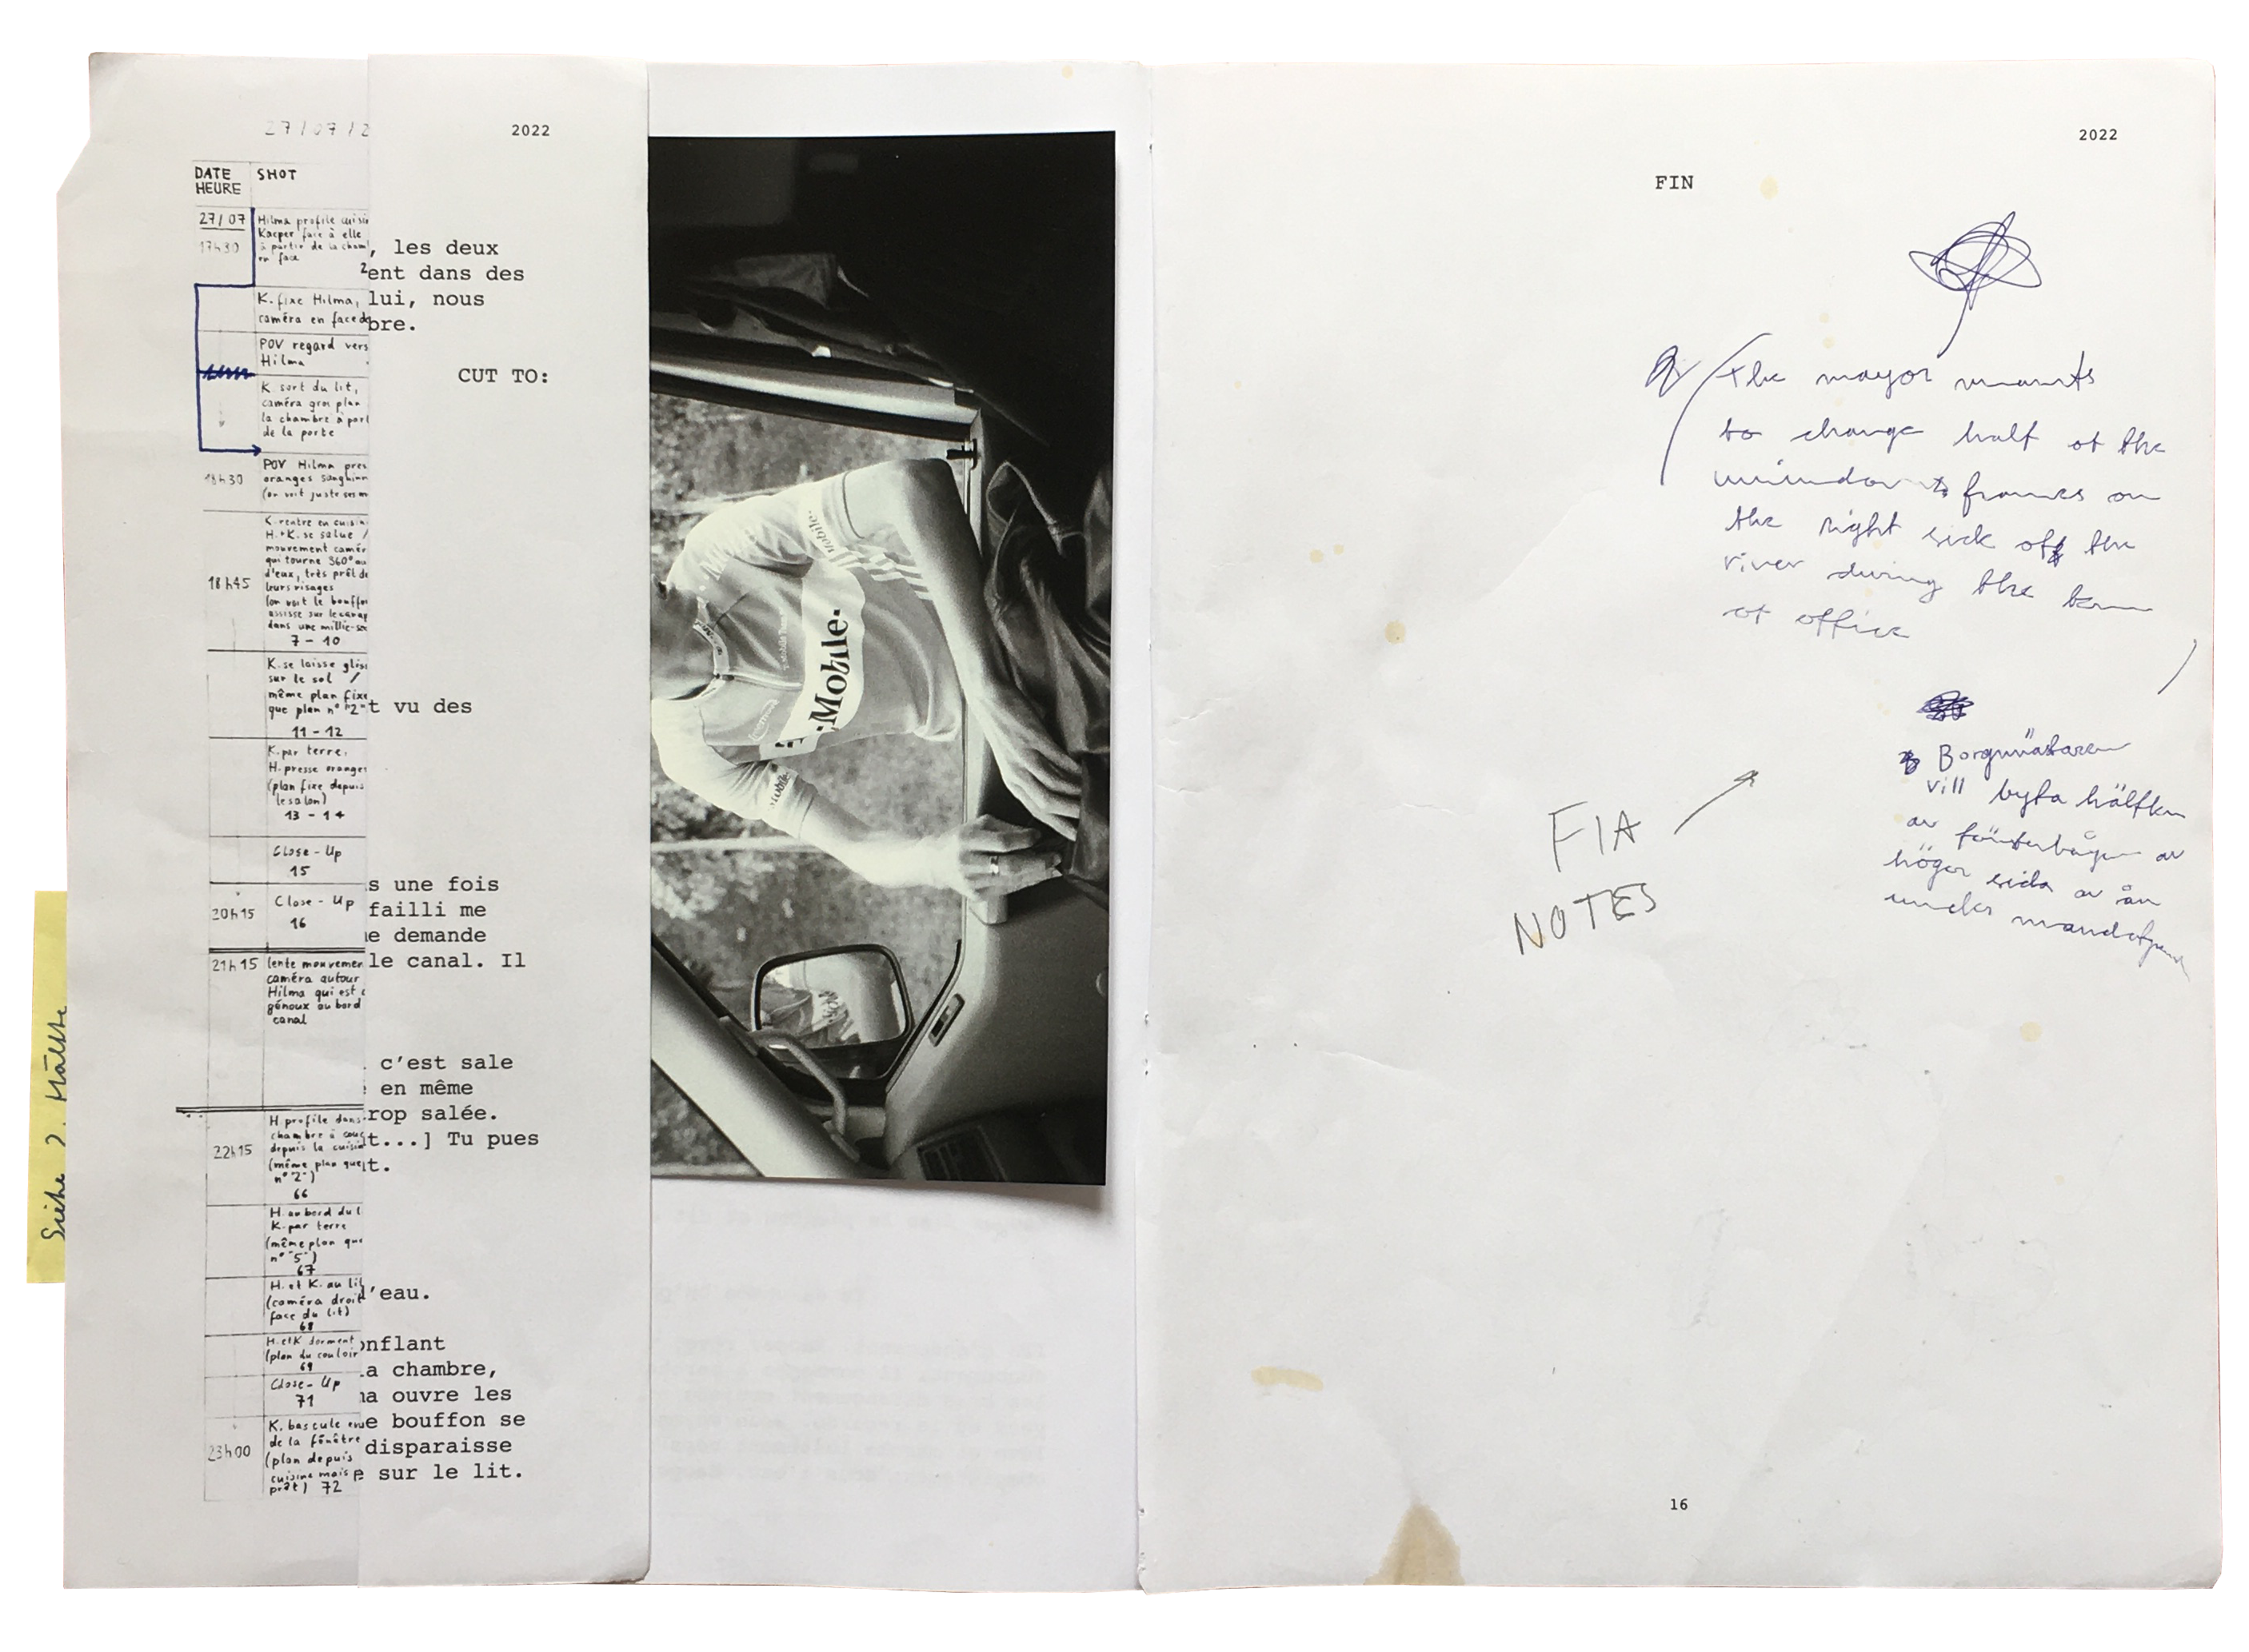 27/07/2
2022
DATE HEURE
SHOT
27/07
17h30
Hilma profile cuisi
Kacper face à elle
à partir de la cham
en face
K. fixe Hilma,
caméra en face de
POV regard vers
Hilma
K. sort du lit,
caméra gros plan
la chambre à part
de la porte
18h30
POV Hilma pres
oranges sanguin
(on voit juste ses m
18h45
K. rentre en cuisin
H.+K. se salue /
mouvement camér
qui tourne 360° au
d'eux, très prêt de
leurs visages
(on voit le bouffon
assisse sur le canap
dans une millie-se
7 - 10
K. se laisse gliss
sur le sol /
même plan fixe
que plan n° "2"
11 - 12
K. par terre,
H. presse oranges
(plan fixe depuis
le salon)
13 - 14
Close - Up
15
20h15
Close - Up
16
21h15
lente mouvemen
caméra autour
Hilma qui est
génoux au bord
canal
22h15
H profile dans
chambre à couc
depuis la cuisi
(même plan que
n° "2")
66
H. au bord du l
K. par terre
(même plan que
n° "5")
67
H. et K. au lit
(caméra droit
face du lit)
68
H. et K dorment
(plan du couloir
69
Close - Up
71
23h00
K. bascule
de la fênêtre
(plan depuis
cuisine mais
prêt) 72
, les deux
ent dans des
lui, nous
bre.
CUT TO:
t vu des
s une fois
failli me
e demande
le canal. Il
c'est sale
en même
rop salée.
t...] Tu pues
t.
'eau.
onflant
a chambre,
a ouvre les
e bouffon se
disparaisse
e sur le lit.
Siehe 2. Hälfte
·Mobile·
mobile·
2022
FIN
The mayor wants
to change half of the
window frames on
the right side of the
river during the term
of office
Borgmästaren
vill byta hälften
av fönsterbågen av
höger sida av ån
under
FIA
NOTES
16